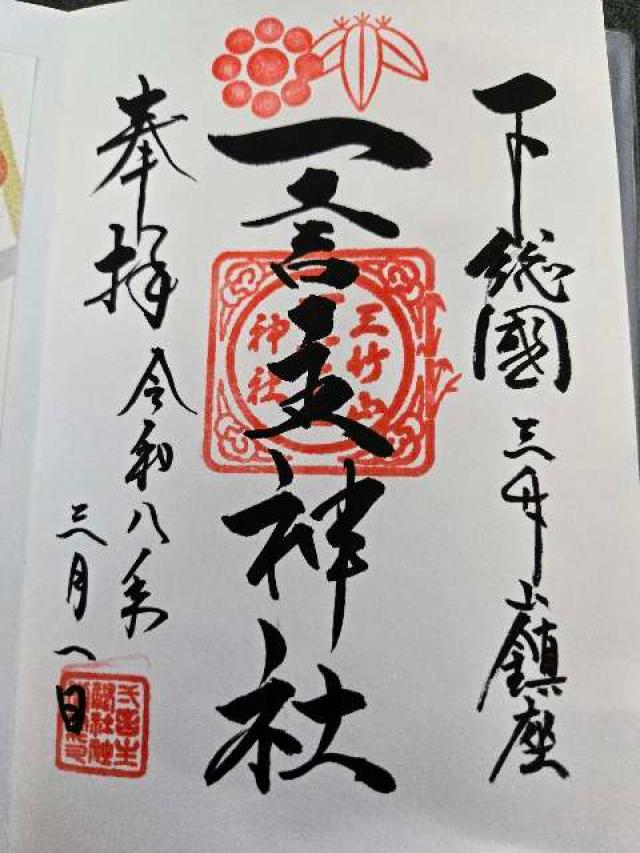 下総國 三竹山鎮座
一言主神社
三竹山
神社
奉拝 令和八年
三月 日